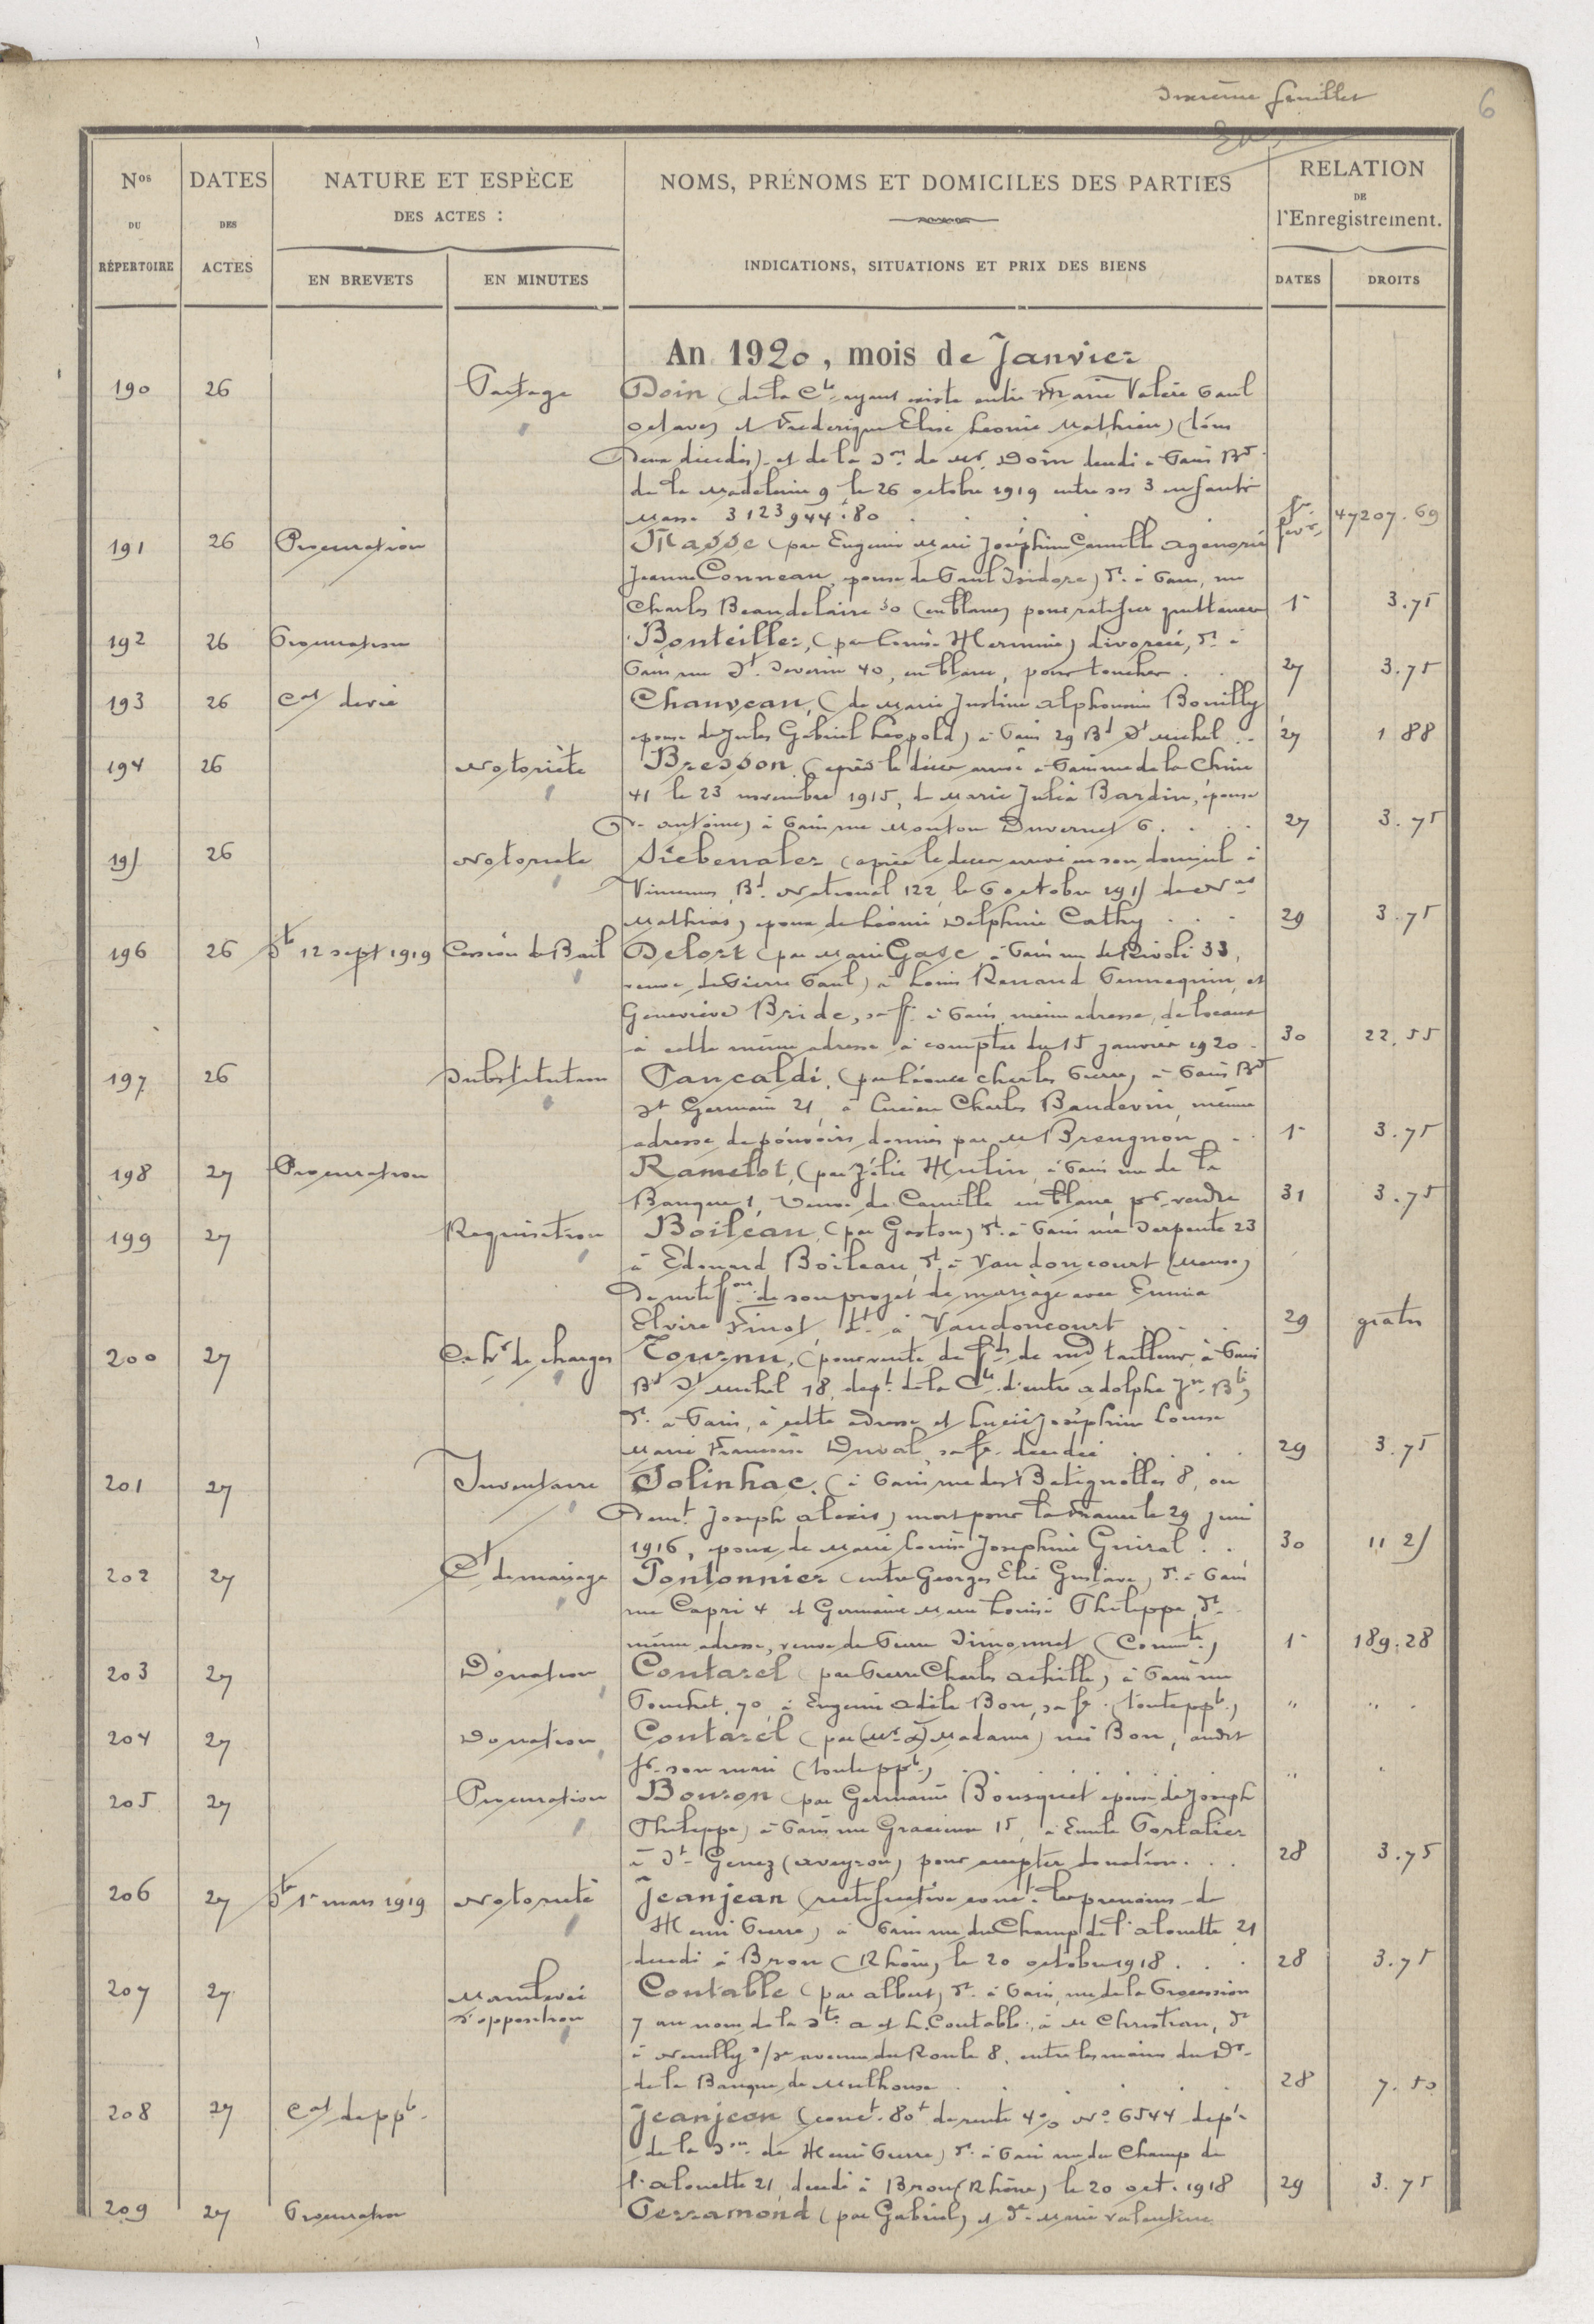 Sixième feuillet
6
Nos DU RÉPERTOIRE
DATES DES ACTES
NATURE ET ESPÈCE DES ACTES :
EN BREVETS
EN MINUTES
NOMS, PRÉNOMS ET DOMICILES DES PARTIES
INDICATIONS, SITUATIONS ET PRIX DES BIENS
RELATION DE l'Enregistrement.
DATES
DROITS
An 1920, mois de Janvier
190 26 Partage Doin (de la Cté ayant existé entre Marie Valère Paul
Octave) et Frédérique Elise Léonie Mathieu) (tous
deux décédés) et de la Son de Mr. Doin décédé à Paris Bd
de la Madeleine 9 le 26 octobre 1919 entre ses 3 enfants
Masse 3123944f.80 1er févr 47207.69
191 26 Procuration Masse (par Eugénie Marie Joséphine Camille Agenorie
Jeanne Conneau, épouse de Paul Isidore) dt. à Paris, rue
Charles Beaudelaire 30 (en blanc) pour ratifier quittance 1er 3.75
192 26 Procuration Bonteiller, (par Louise Hermine) divorcée, dt. à
Paris rue St. Séverin 40, en blanc, pour toucher 27 3.75
193 26 Cat de vie Chauveau, (de Marie Justine Alphonsine Bouilly
épouse de Jules Gabriel Léopold) à Paris 29 Bd St Michel 27 1 88
194 26 Notoriété Bresson (après le décès arrivé à Paris rue de la Chine
41 le 23 novembre 1915, de Marie Julia Bardin, épouse
Antoine) à Paris rue Mouton Duvernet 6 27 3.75
195 26 Notoriété Siebenaler (après le décès arrivé en son domicile à
Vincennes, Bd. National 122, le 6 octobre 1915 de Nas
Mathias) époux de Léonie Delphine Cathy 29 3.75
196 26 St 12 sept 1919 Cession de Bail Delort (par Marie Gasc, à Paris rue de Rivoli 33,
veuve de Pierre Paul) à Louis Renaud Pennequin, et
Geneviève Bride, sa fe. à Paris, même adresse, de locaux
à cette même adresse à compter du 15 janvier 1920 30 22.55
197 26 Substitution Pancaldi, (par Léonce Charles Pierre) à Paris Bd
St Germain 21, à Lucien Charles Baudevin, même
adresse de pouvoirs donnés par M Breugnon 1er 3.75
198 27 Procuration Ramelot, (par Zélie Hulin, à Paris rue de la
Banque 1, veuve de Camille en blanc, pr vendre 31 3.75
199 27 Réquisition Boileau, (par Gaston) dt. à Paris rue Serpente 23
à Edouard Boileau, dt. à Vaudoncourt (Meuse)
De notifon de son projet de mariage avec Emma
Elvire Finot, dt. à Vaudoncourt 29 gratis
200 27 Cahr de charges Tournu, (pour vente de fds de md tailleur, à Paris
Bd St Michel 18, dépt. de la Cté d'entre Adolphe Jn. Bte)
dt. à Paris, à cette adresse et Lucie Joséphine Louise
Marie Françoise Duval, sa fe. décédée 29 3.75
201 27 Inventaire Solinhac. (à Paris rue des Batignolles 8, où
Demt. Joseph Alexis) mort pour la France le 29 juin
1916, époux de Marie Louise Joséphine Guiral 30 11 25
202 27 Ct de mariage Pontonnier (entre Georges Elie Gustave) dt. à Paris
rue Capri 4 et Germaine Marie Louise Philippe dt.
même adresse, veuve de Pierre Simonnet (Commté) 1er 189.28
203 27 Donation Contarel (par Pierre Charles Achille) à Paris rue
Pouchet, 70, à Eugénie Adèle Bon, sa fe. (toute ppté) " "
204 27 Donation Contarel (par (Mr à) Madame) née Bon, audit
sr son mari (toute ppté) "
205 27 Procuration Bouron (par Germaine Bousquet épouse de Joseph
Philippe) à Paris rue Gracieuse 15, à Emile Portalier
à St. Geniez (Aveyron) pour accepter donation 28 3.75
206 27 St 1er mars 1919 Notoriété Jeanjean (rectificative conct. les prénoms de
Henri Pierre) à Paris rue du Champ de l'Alouette 21
décédé à Bron (Rhône) le 20 octobre 1918 28 3.75
207 27 Mainlevée d'opposition Contable (par Albert) dt. à Paris, rue de la Procession
7 au nom de la Sté. A et L. Contable, à M Christian, dt
à Neuilly s/Se avenue du Roule 8, entre les mains du Dr
de la Banque de Mulhouse 28 7.50
208 27 Cat de ppté Jeanjean (conct. 80f de rente 4% No 6544 dépt.
de la Son de Henri Pierre) dt. à Paris rue du Champ de
l'Alouette 21, décédé à Bron (Rhône) le 20 oct. 1918 29 3.75
209 27 Procuration Perramond (par Gabriel) et De Marie Valentine